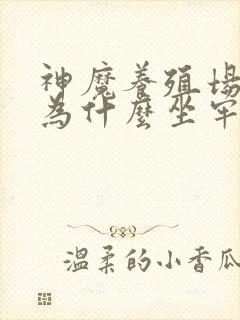 神魔養殖場
為什麼坐牢
溫柔的小香瓜